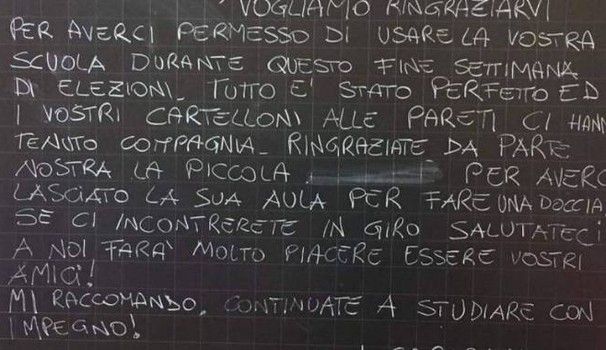 VOGLIAMO RINGRAZIARVI
PER AVERCI PERMESSO DI USARE LA VOSTRA
SCUOLA DURANTE QUESTO FINE SETTIMANA
DI ELEZIONI. TUTTO E' STATO PERFETTO ED
I VOSTRI CARTELLONI ALLE PARETI CI HANN
TENUTO COMPAGNIA. RINGRAZIATE DA PARTE
NOSTRA LA PICCOLA PER AVERC
LASCIATO LA SUA AULA PER FARE UNA DOCCIA
SE CI INCONTRERETE IN GIRO SALUTATECI
A NOI FARA' MOLTO PIACERE ESSERE VOSTRI
AMICI!
MI RACCOMANDO, CONTINUATE A STUDIARE CON
IMPEGNO!